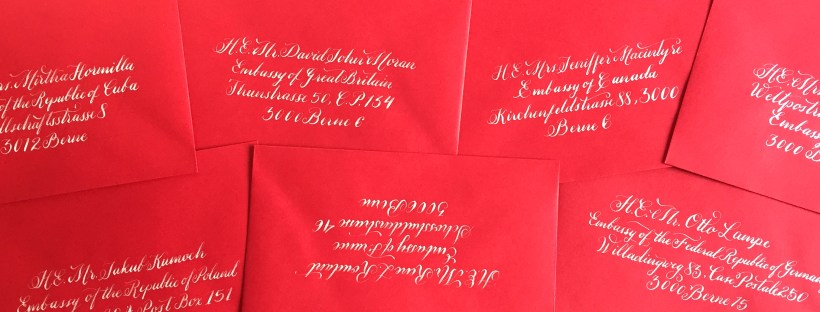 rs. Mirtha Hormilla
of the Republic of Cuba
llschaftsstrasse 8
3012 Berne
H.E. Mr. David John Moran
Embassy of Great Britain
Thunstrasse 50, C.P. 154
3000 Berne 6
H.E. Mrs Jeniffer Macintyre
Embassy of Canada
Kirchenfeldstrasse 88, 3000
Berne 6
H.E. Mr
Weltpostr
Embass
3000 B
H.E. Mr. Jakub Kumoch
Embassy of the Republic of Poland
Post Box 151
H.E. Mr René
Embassy of
Schosshaldenstrasse 46
3006 Bern
H.E. Mr. Otto Lampe
Embassy of the Federal Republic of German
Willadingweg 83, Case Postale 250
3000 Berne 15